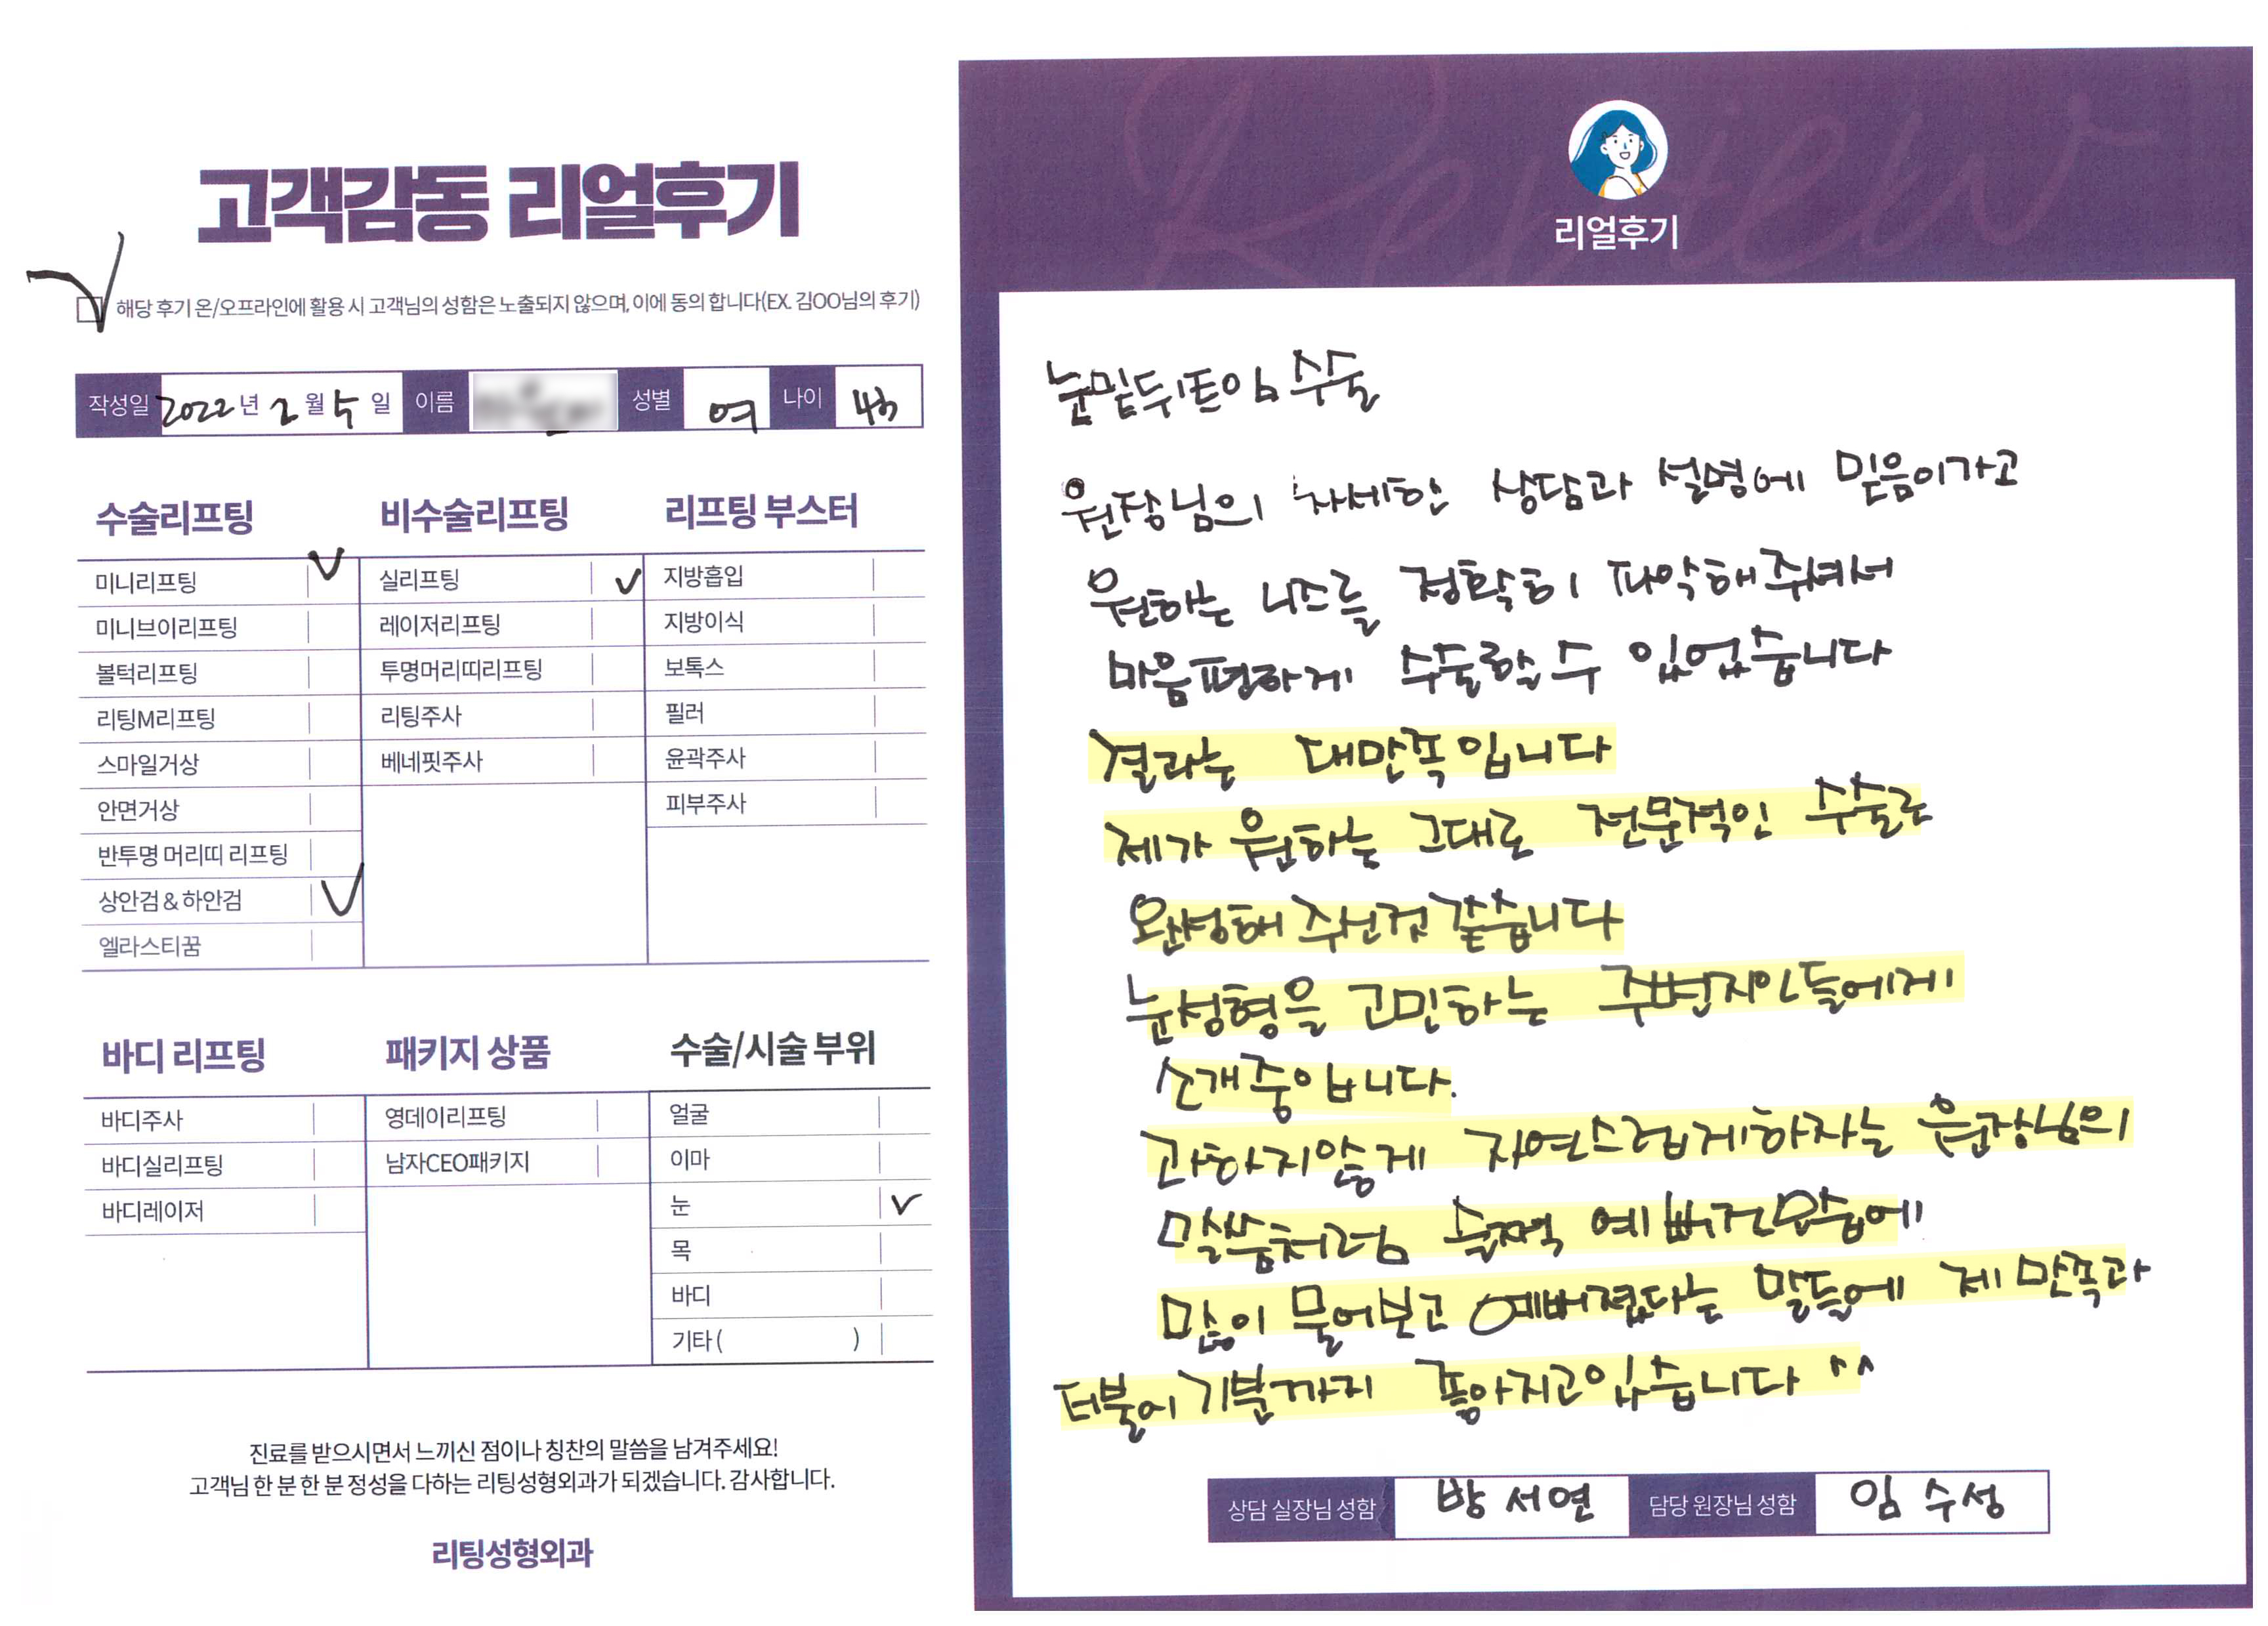 고객감동 리얼후기
해당 후기 온/오프라인에 활용 시 고객님의 성함은 노출되지 않으며, 이에 동의 합니다(EX. 김OO님의 후기)
작성일 2022년 2월 5일 이름 성별 여 나이
수술리프팅
미니리프팅
미니브이리프팅
볼턱리프팅
리팅M리프팅
스마일거상
안면거상
반투명 머리띠 리프팅
상안검 & 하안검
엘라스티꿈
비수술리프팅
실리프팅
레이저리프팅
투명머리띠리프팅
리팅주사
베네핏주사
리프팅 부스터
지방흡입
지방이식
보톡스
필러
윤곽주사
피부주사
바디 리프팅
바디주사
바디실리프팅
바디레이저
패키지 상품
영데이리프팅
남자CEO패키지
수술/시술 부위
얼굴
이마
눈
목
바디
기타( )
진료를 받으시면서 느끼신 점이나 칭찬의 말씀을 남겨주세요!
고객님 한 분 한 분 정성을 다하는 리팅성형외과가 되겠습니다. 감사합니다.
리팅성형외과
Review
리얼후기
눈밑뒤트임 수술
원장님의 자세한 상담과 설명에 믿음이가고
원하는 니즈를 정확히 파악해주셔서
마음편하게 수술할수 있었습니다
결과는 대만족입니다
제가 원하는 그대로 전문적인 수술로
완성해 주신것 같습니다
눈성형을 고민하는 주변지인들에게
소개중입니다.
과하지않게 자연스럽게하자는 원장님의
말씀처럼 예뻐진모습에
많이 물어보고 예뻐졌다는 말들에 제 만족과
더불어 기분까지 좋아지고있습니다 ^^
상담 실장님 성함 방서연 담당 원장님 성함 임수성